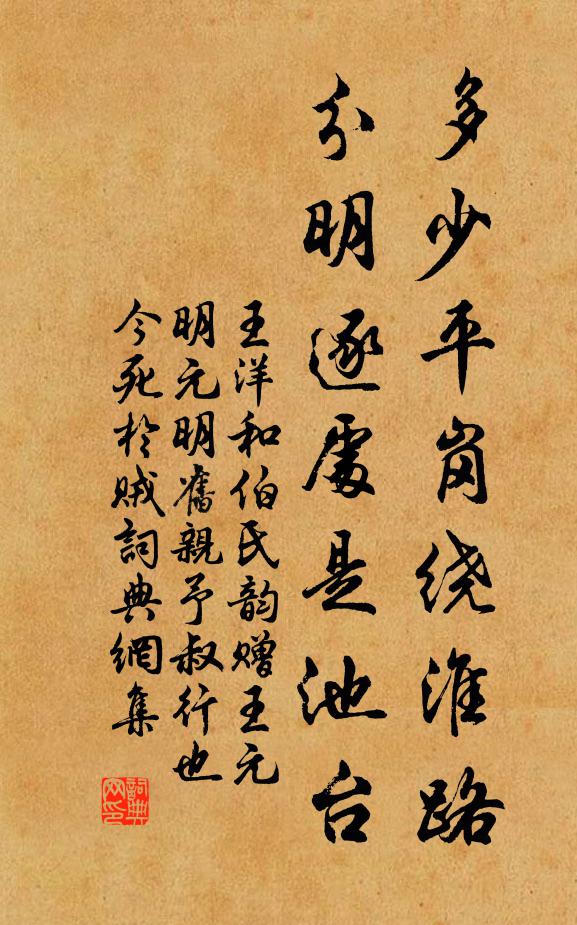 多少平岗绕淮路
分明逐處是池台
王洋和伯氏韵赠王元
明元明舊親予叔行也
今死於贼詞典網集
詞典网印